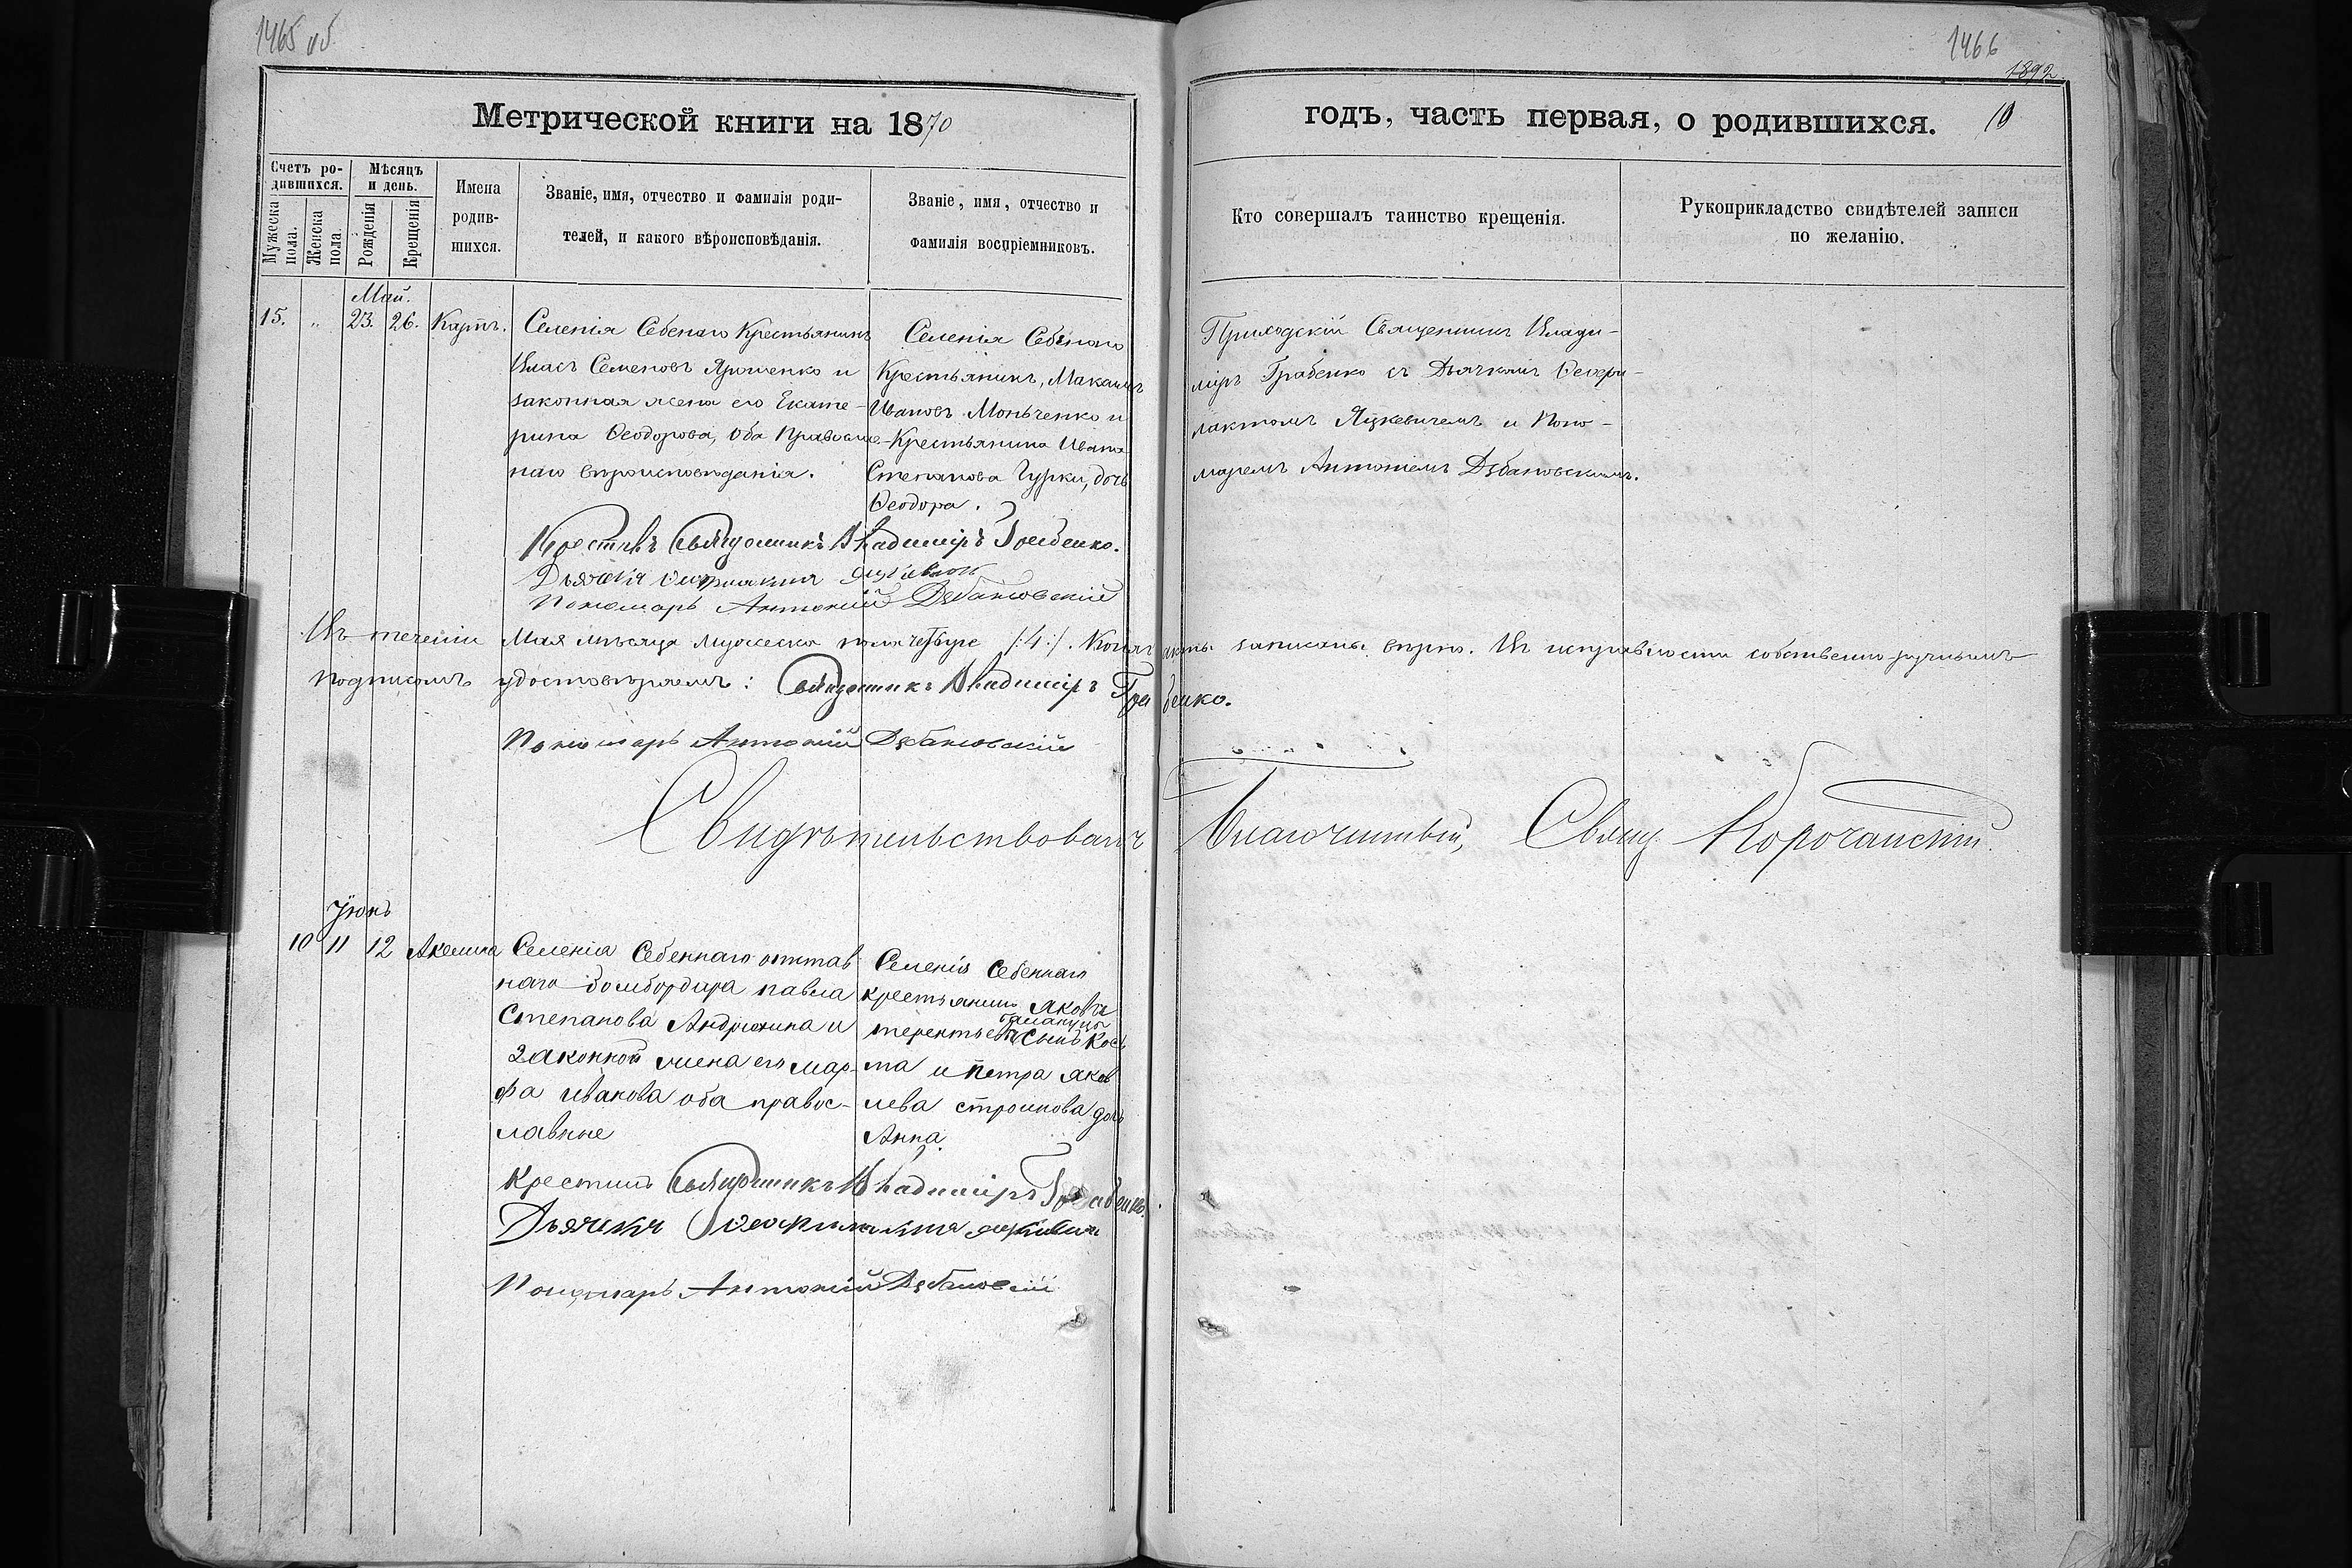 1465 об
1466
1892
Метрической книги на 1870
годъ, часть первая, о родившихся.
10
Счетъ ро-
дившихся.
Мѣсяцъ
и день.
Мужеска
пола.
Женска
пола.
Рожденія
Крещенія
Имена
родив-
шихся.
Званіе, имя, отчество и фамилія роди-
телей, и какого вѣроисповѣданія.
Званіе, имя, отчество и
фамилія воспріемниковъ.
Кто совершалъ таинство крещенія.
Рукоприкладство свидѣтелей записи
по желанію.
Май.
15. „ 23. 26. Карпъ.
Селенія Себенаго Крестьянинъ
Власъ Семеновъ Ярошенко и
законная жена его Екате-
рина Ѳеодорова, оба Православ-
наго вѣроисповѣданія.
Селенія Себенаго
Крестьянинъ, Максимъ
Ивановъ Моньченко и
Крестьянина Ивана
Степанова Гурки, дочь
Ѳеодора.
Приходскій Священникъ Влади-
міръ Грабенко съ Дьячкомъ Ѳеофи-
лактомъ Яцкевичемъ и Поно-
маремъ Антоніемъ Дзбановскимъ.
Крестилъ Священникъ Владиміръ Грабенко.
Дьячекъ Ѳеофилактъ Яцкевичъ
Пономарь Антоній Дзбановскій
Въ теченіи Мая мѣсяца мужеска пола четыре /:4:/. Коихъ акты записаны вѣрно. Въ исправности собственно ручнымъ
подписомъ удостовѣряемъ: Священникъ Владиміръ Грабенко.
Пономарь Антоній Дзбановскій
Свидѣтельствовалъ Благочинный, Свящ. Корочанскій.
Іюнь
10 11 12 Акелина
Селенія Себеннаго отстав
наго бомбордира павла
Степанова Андрюхина и
законной жена его Мар-
фа иванова оба правос-
лавные
Селенія Себеннаго
крестьянинъ Яковъ
терентьевъ сынъ Кос
ма и Петра Яков
лева строшкова дочь
Анна.
Крестилъ Священникъ Владиміръ Грабенко.
Дьячекъ Ѳеофилактъ Яцкевичъ
Пономарь Антоній Дзбановскій